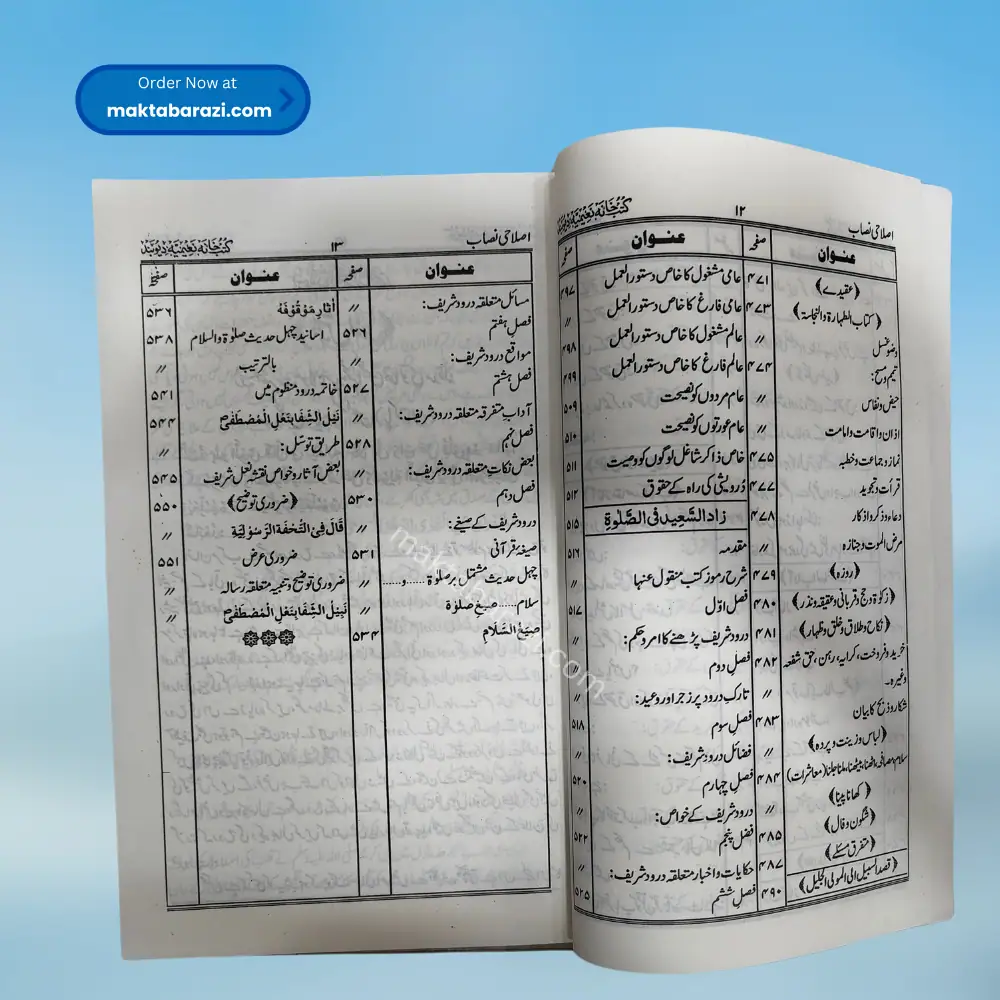 Order Now at
maktabarazi.com
اصلاحی نصاب
۱۲
کتب خانہ نعیمیہ دیوبند
عنوان
صفحہ
عنوان
صفحہ
﴿عقیدے﴾ ۴۷۱
﴿کتاب الطہارة والنجاسة﴾ ۴۷۳
وضو غسل 〃
تیمم ومسح: ۴۷۴
حیض ونفاس 〃
اذان واقامت وامامت 〃
نماز وجماعت وخطبہ ۴۷۵
قرأت وتجوید ۴۷۷
دعاء وذکر واذکار ۴۷۸
مرض الموت وجنازہ 〃
﴿روزہ﴾ ۴۷۹
﴿زکوٰة وحج وقربانی وعقیقہ ونذر﴾ ۴۸۰
﴿نکاح وطلاق وخلق وظہار﴾ ۴۸۱
خرید وفروخت، کرایہ، رہن، حق شفعہ ۴۸۲
وغیرہ۔ 〃
شکار وذبح کا بیان ۴۸۳
﴿لباس وزینت وپردہ﴾ 〃
سلام، مصافحہ، اٹھنا، بیٹھنا، ملنا جلنا (معاشرات) ۴۸۴
﴿کھانا پینا﴾ 〃
﴿شگون وفال﴾ ۴۸۵
﴿متفرق مسئلے﴾ ۴۸۷
﴿قصد السبیل الی المولی الجلیل﴾ ۴۹۰
عامی مشغول کا خاص دستور العمل ۴۹۷
عامی فارغ کا خاص دستور العمل 〃
عالم مشغول کا خاص دستور العمل ۴۹۸
عالم فارغ کا خاص دستور العمل ۴۹۹
عام مردوں کو نصیحت ۵۰۹
عام عورتوں کو نصیحت ۵۱۰
خاص ذاکر شاغل لوگوں کو وصیت ۵۱۱
دُرویشی کی راہ کے حقوق ۵۱۲
زاد السَّعِید فی الصَّلٰوةِ ۵۱۵
مقدمہ ۵۱۶
شرح رموز کتب منقول عنہا 〃
فصل اوّل ۵۱۷
درود شریف پڑھنے کا امر وحکم: 〃
فصلِ دوم 〃
تارکِ درود پر زجر اور وعید: 〃
فصلِ سوم ۵۱۸
فضائل درود شریف: 〃
فصلِ چہارم ۵۲۰
درود شریف کے خواص: 〃
فصل پنجم ۵۲۲
حکایات واخبار متعلقہ درود شریف: 〃
فصلِ ششم ۵۲۵
اصلاحی نصاب
۱۳
کتب خانہ نعیمیہ دیوبند
عنوان
صفحہ
عنوان
صفحہ
مسائل متعلقہ درود شریف: 〃
فصلِ ہفتم ۵۲۶
مواقع درود شریف: 〃
فصل ہشتم ۵۲۷
آداب متفرقہ متعلقہ درود شریف: 〃
فصل نہم ۵۲۸
بعض نکات متعلقہ درود شریف: 〃
فصل دہم ۵۳۰
درود شریف کے صیغے: 〃
صیغۂ قرآنی ۵۳۱
چہل حدیث مشتمل بر صلوٰة......و...... 〃
سلام......صیغِ صلوٰة 〃
صِیَغُ السَّلَامِ ۵۳۴
اٰثار مَوْقُوْفَه ۵۳۶
اسانید چہل حدیث صلوٰة والسلام ۵۳۸
بالترتیب 〃
خاتمہ درود منظوم میں ۵۴۱
نَیْلُ الشِّفَا بِنَعْلِ الْمُصْطَفٰی ۵۴۴
طریق توسّل: 〃
بعض آثار وخواص نقشہ نعل شریف ۵۴۵
﴿ضروری توضیح﴾ ۵۵۰
قَالَ فِیْ التُّحْفَةِ الرَّسُوْلِیَّةِ 〃
ضروری عرض ۵۵۱
ضروری توضیح وتنبیہ متعلقہ رسالہ 〃
نَیْلُ الشِّفَا بِنَعْلِ الْمُصْطَفٰی 〃
maktabarazi.com